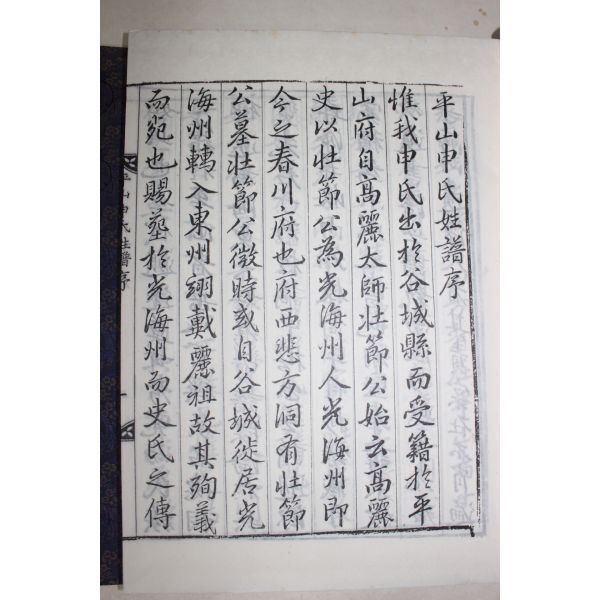 平山申氏姓譜序
惟我申氏出於谷城縣而受籍於平
山府自高麗太師壯節公始云高麗
史以壯節公為光海州人光海州即
今之春川府也府西悲方洞有壯節
公墓壯節公微時或自谷城徙居光
海州轉入東州翊戴麗祖故其殉義
而宛也賜塟於光海州而史氏之傳
平山申氏姓譜序
一